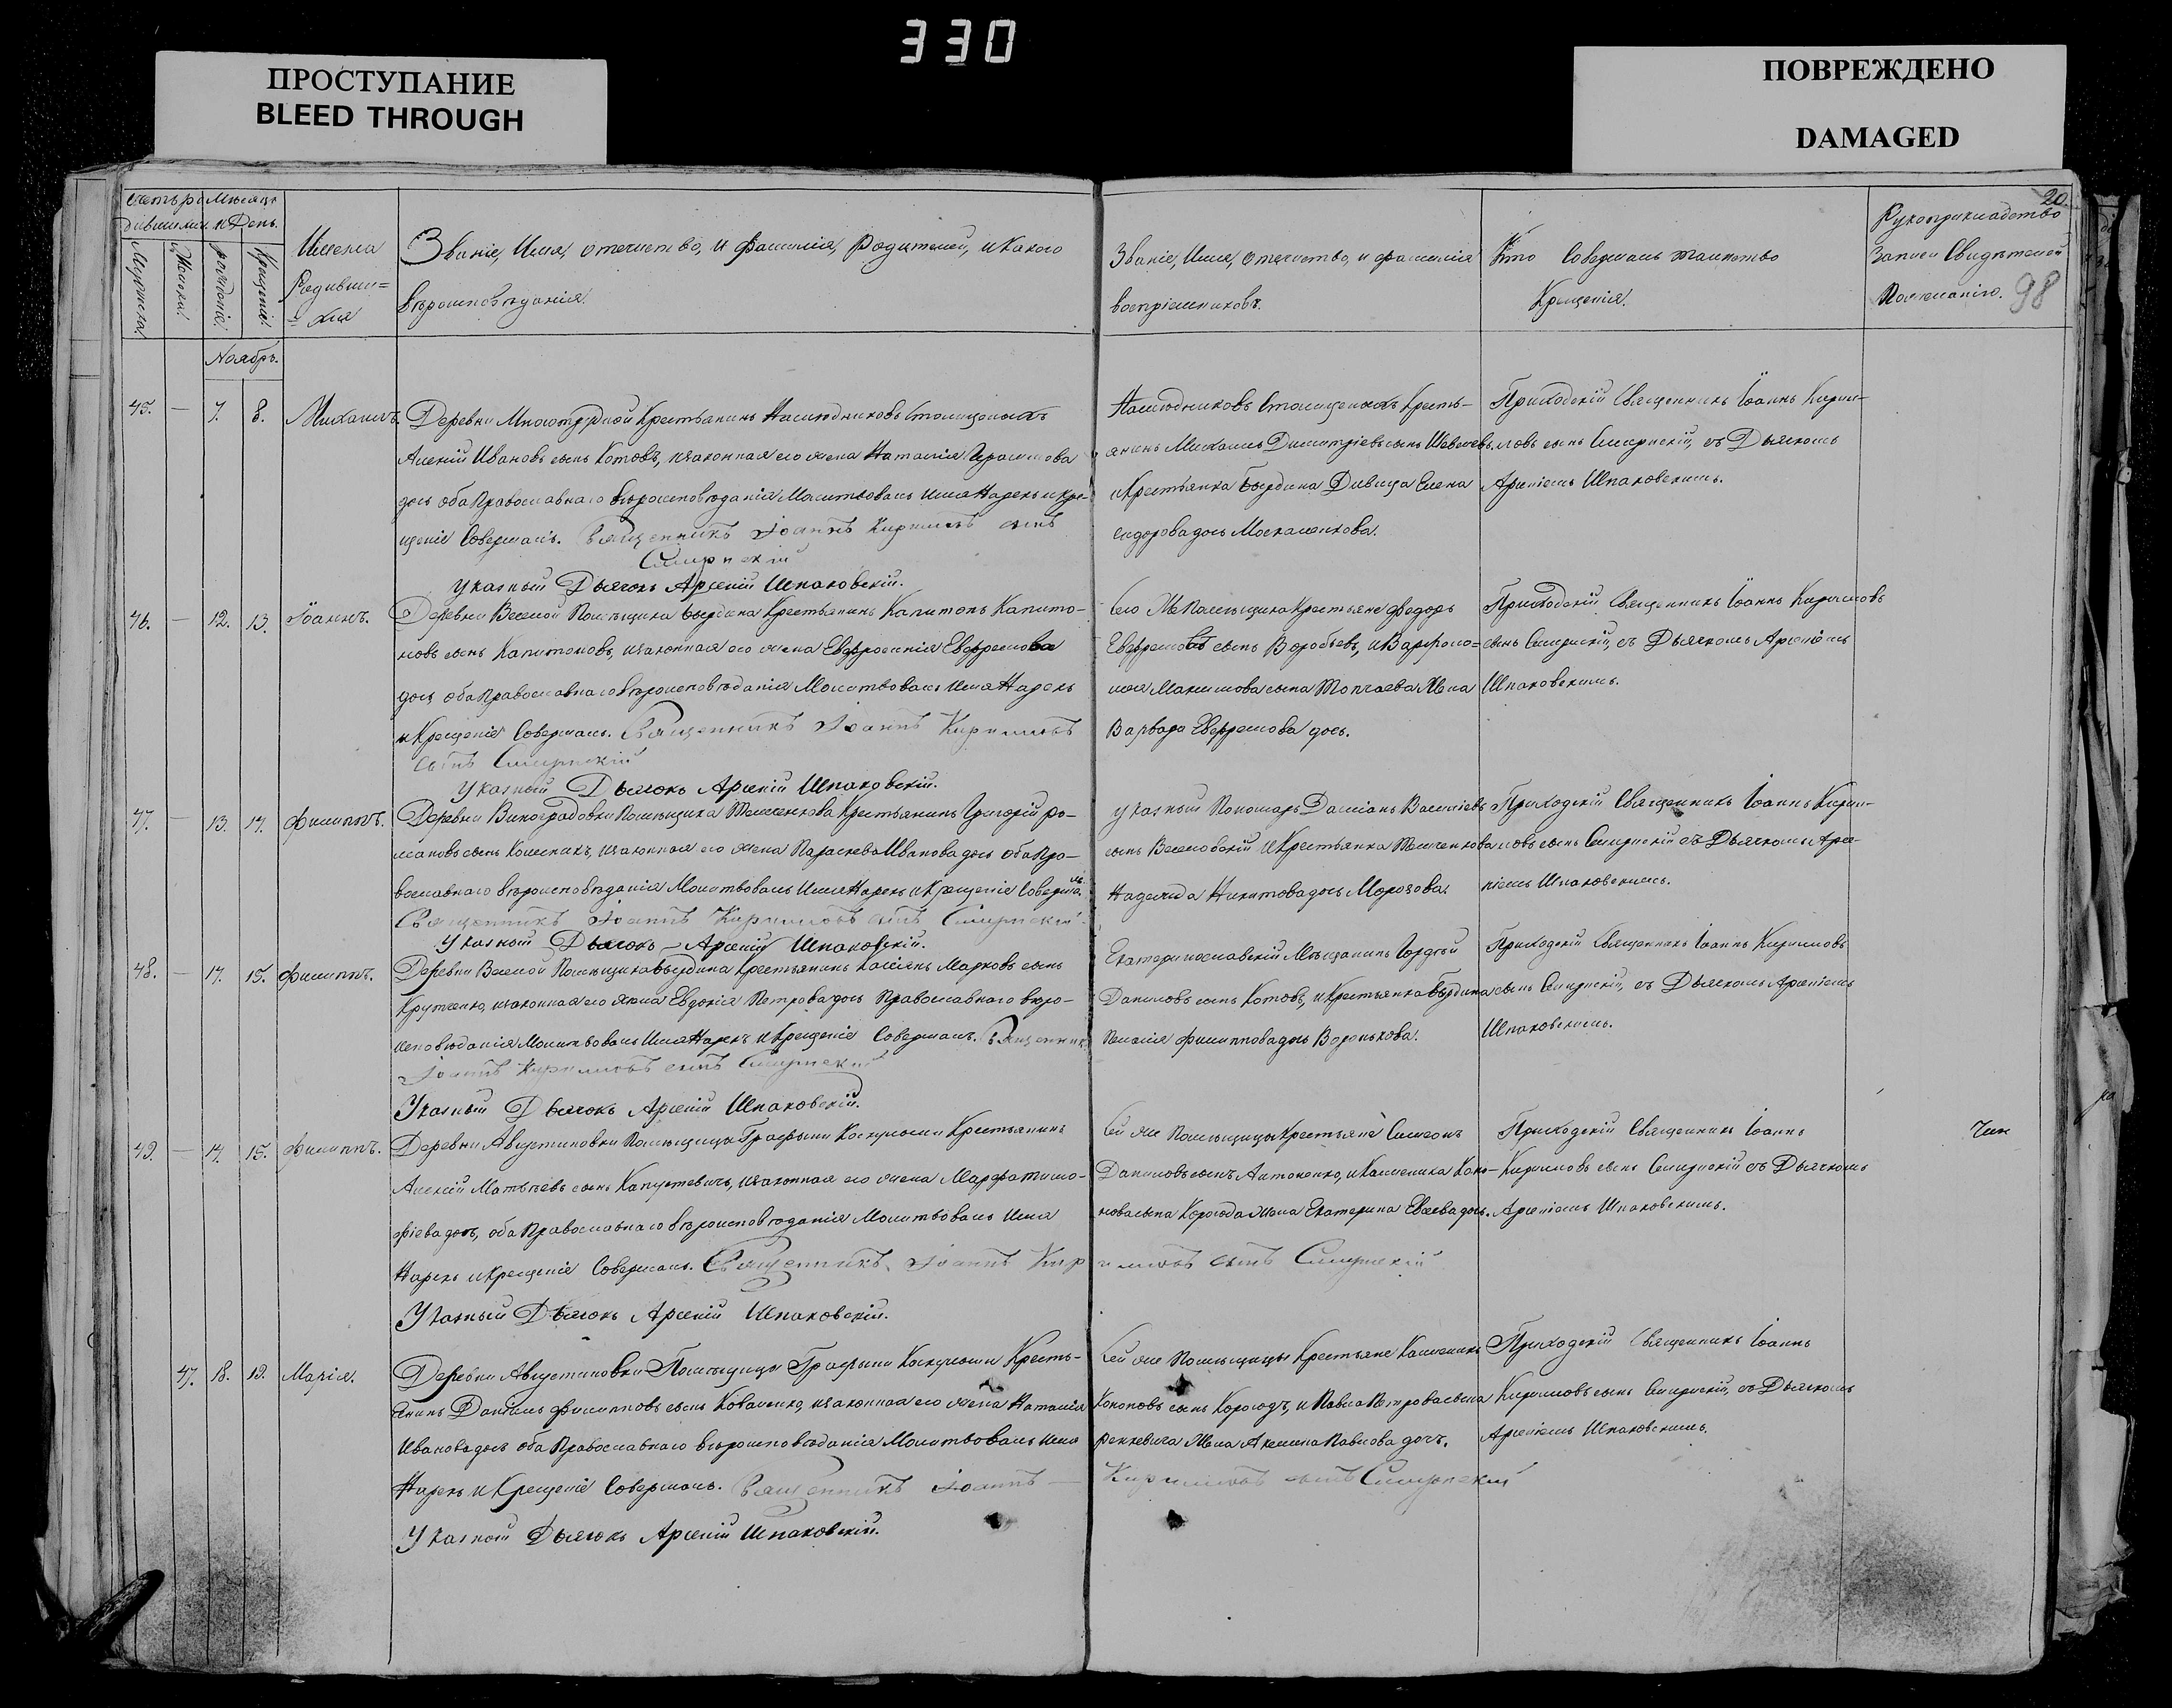 330
ПРОСТУПАНИЕ
BLEED THROUGH
ПОВРЕЖДЕНО
DAMAGED
20.
98
Мѣсяцъ
и День.
Имена
Родивши=
=хся
Званіе, Имя, отечество, и фамилія, Родителей, и какого
вѣроисповѣданія.
Званіе, Имя, Отечество, и фамилія
воспріемниковъ.
Кто Совершалъ таинство
Крещенія.
Рукоприкладство
Записи Свидѣтелей
По желанію.
Ноябрь.
45. — 7. 8. Михаилъ.
Деревни Крестьянинъ Наслѣдниковъ
Алексій Ивановъ сынъ Котовъ, и законная его жена Наталія
дочь оба Православнаго вѣроисповѣданія Молитвовалъ имя Нарекъ и кре-
щеніе Совершалъ. Священникъ Іоаннъ Кириловъ сынъ
Смирнскій
Указный Дьячокъ Арсеній Шпаковскій.
Наслѣдниковъ Кресть-
янинъ Михаилъ Димитріевъ сынъ
и Крестьянка Дѣвица Елена
сидорова дочь Москаленкова.
Приходскій Священникъ Іоаннъ Кири-
ловъ сынъ Смирнскій, съ Дьячкомъ
Арсеніемъ Шпаковскимъ.
46. — 12. 13. Іоаннъ.
Деревни Веселой Помѣщика Крестьянинъ Капитонъ Капито-
новъ сынъ Капитоновъ, и законная его жена Евфросинія Евфремова
дочь оба Православнаго вѣроисповѣданія Молитвовалъ Имя Нарекъ
и Крещеніе Совершалъ. Священникъ Іоаннъ Кириловъ
сынъ Смирнскій
Указный Дьячокъ Арсеній Шпаковскій.
Его Же Помѣщика Крестьяне Федоръ
Евфремовъ сынъ Воробьевъ, и Варфоло=
мея Максимова сына Жена
Варвара Евфремова дочь.
Приходскій Священникъ Іоаннъ Кириловъ
сынъ Смирнскій, съ Дьячкомъ Арсеніемъ
Шпаковскимъ.
47. — 13. 14. Филиппъ.
Деревни Виноградовки Помѣщика Крестьянинъ Григорій Ро-
мановъ сынъ и законная его жена Параскева Иванова дочь оба Пра-
вославнаго вѣроисповѣданія Молитвовалъ Имя Нарекъ и Крещеніе Совершалъ.
Священникъ Іоаннъ Кириловъ сынъ Смирнскій
Указный Дьячокъ Арсеній Шпаковскій.
Указный Пономарь Даміанъ Василіевъ
сынъ и Крестьянка
Надежда Никитова дочь Морозова.
Приходскій Священникъ Іоаннъ Кири-
ловъ сынъ Смирнскій съ Дьячкомъ Арсе-
ніемъ Шпаковскимъ.
48. — 14. 15. Филиппъ.
Деревни Веселой Помѣщика Крестьянинъ Марковъ сынъ
и законная его жена Евдокія Петрова дочь Православнаго вѣро-
исповѣданія Молитвовалъ Имя Нарекъ и Крещеніе Совершалъ. Священникъ
Іоаннъ Кириловъ сынъ Смирнскій
Указный Дьячокъ Арсеній Шпаковскій.
Екатеринославскій Мѣщанинъ Гордѣй
Даниловъ сынъ Котовъ, и Крестьянка
Филиппова дочь Воронькова.
Приходскій Священникъ Іоаннъ Кириловъ
сынъ Смирнскій, съ Дьячкомъ Арсеніемъ
Шпаковскимъ.
49. — 14. 15. Филиппъ.
Деревни Августиновки Помѣщицы Графыни Крестьянинъ
Алексій Матвѣевъ сынъ и законная его жена Марфа Тимо-
фіева дочь, оба Православнаго вѣроисповѣданія Молитвовалъ Имя
Нарекъ и Крещеніе Совершалъ. Священникъ Іоаннъ Кириловъ сынъ Смирнскій
Указный Дьячокъ Арсеній Шпаковскій.
Сей же Помѣщицы Крестьяне Симеонъ
Даниловъ сынъ Антоненко, и Калиника Коно-
нова сына Жена Екатерина дочь.
Приходскій Священникъ Іоаннъ
Кириловъ сынъ Смирнскій съ Дьячкомъ
Арсеніемъ Шпаковскимъ.
47. 18. 19. Марія.
Деревни Августиновки Помѣщицы Графыни Кресть-
янинъ Даніилъ Филипповъ сынъ Коваленко, и законная его жена Наталія
Иванова дочь оба Православнаго вѣроисповѣданія Молитвовалъ Имя
Нарекъ и Крещеніе Совершалъ. Священникъ Іоаннъ — Кириловъ сынъ Смирнскій
Указный Дьячокъ Арсеній Шпаковскій.
Сей же Помѣщицы Крестьяне Калиникъ
Кононовъ сынъ и Павла Петрова сына
Жена Акилина Павлова дочь.
Приходскій Священникъ Іоаннъ
Кириловъ сынъ Смирнскій, съ Дьячкомъ
Арсеніемъ Шпаковскимъ.